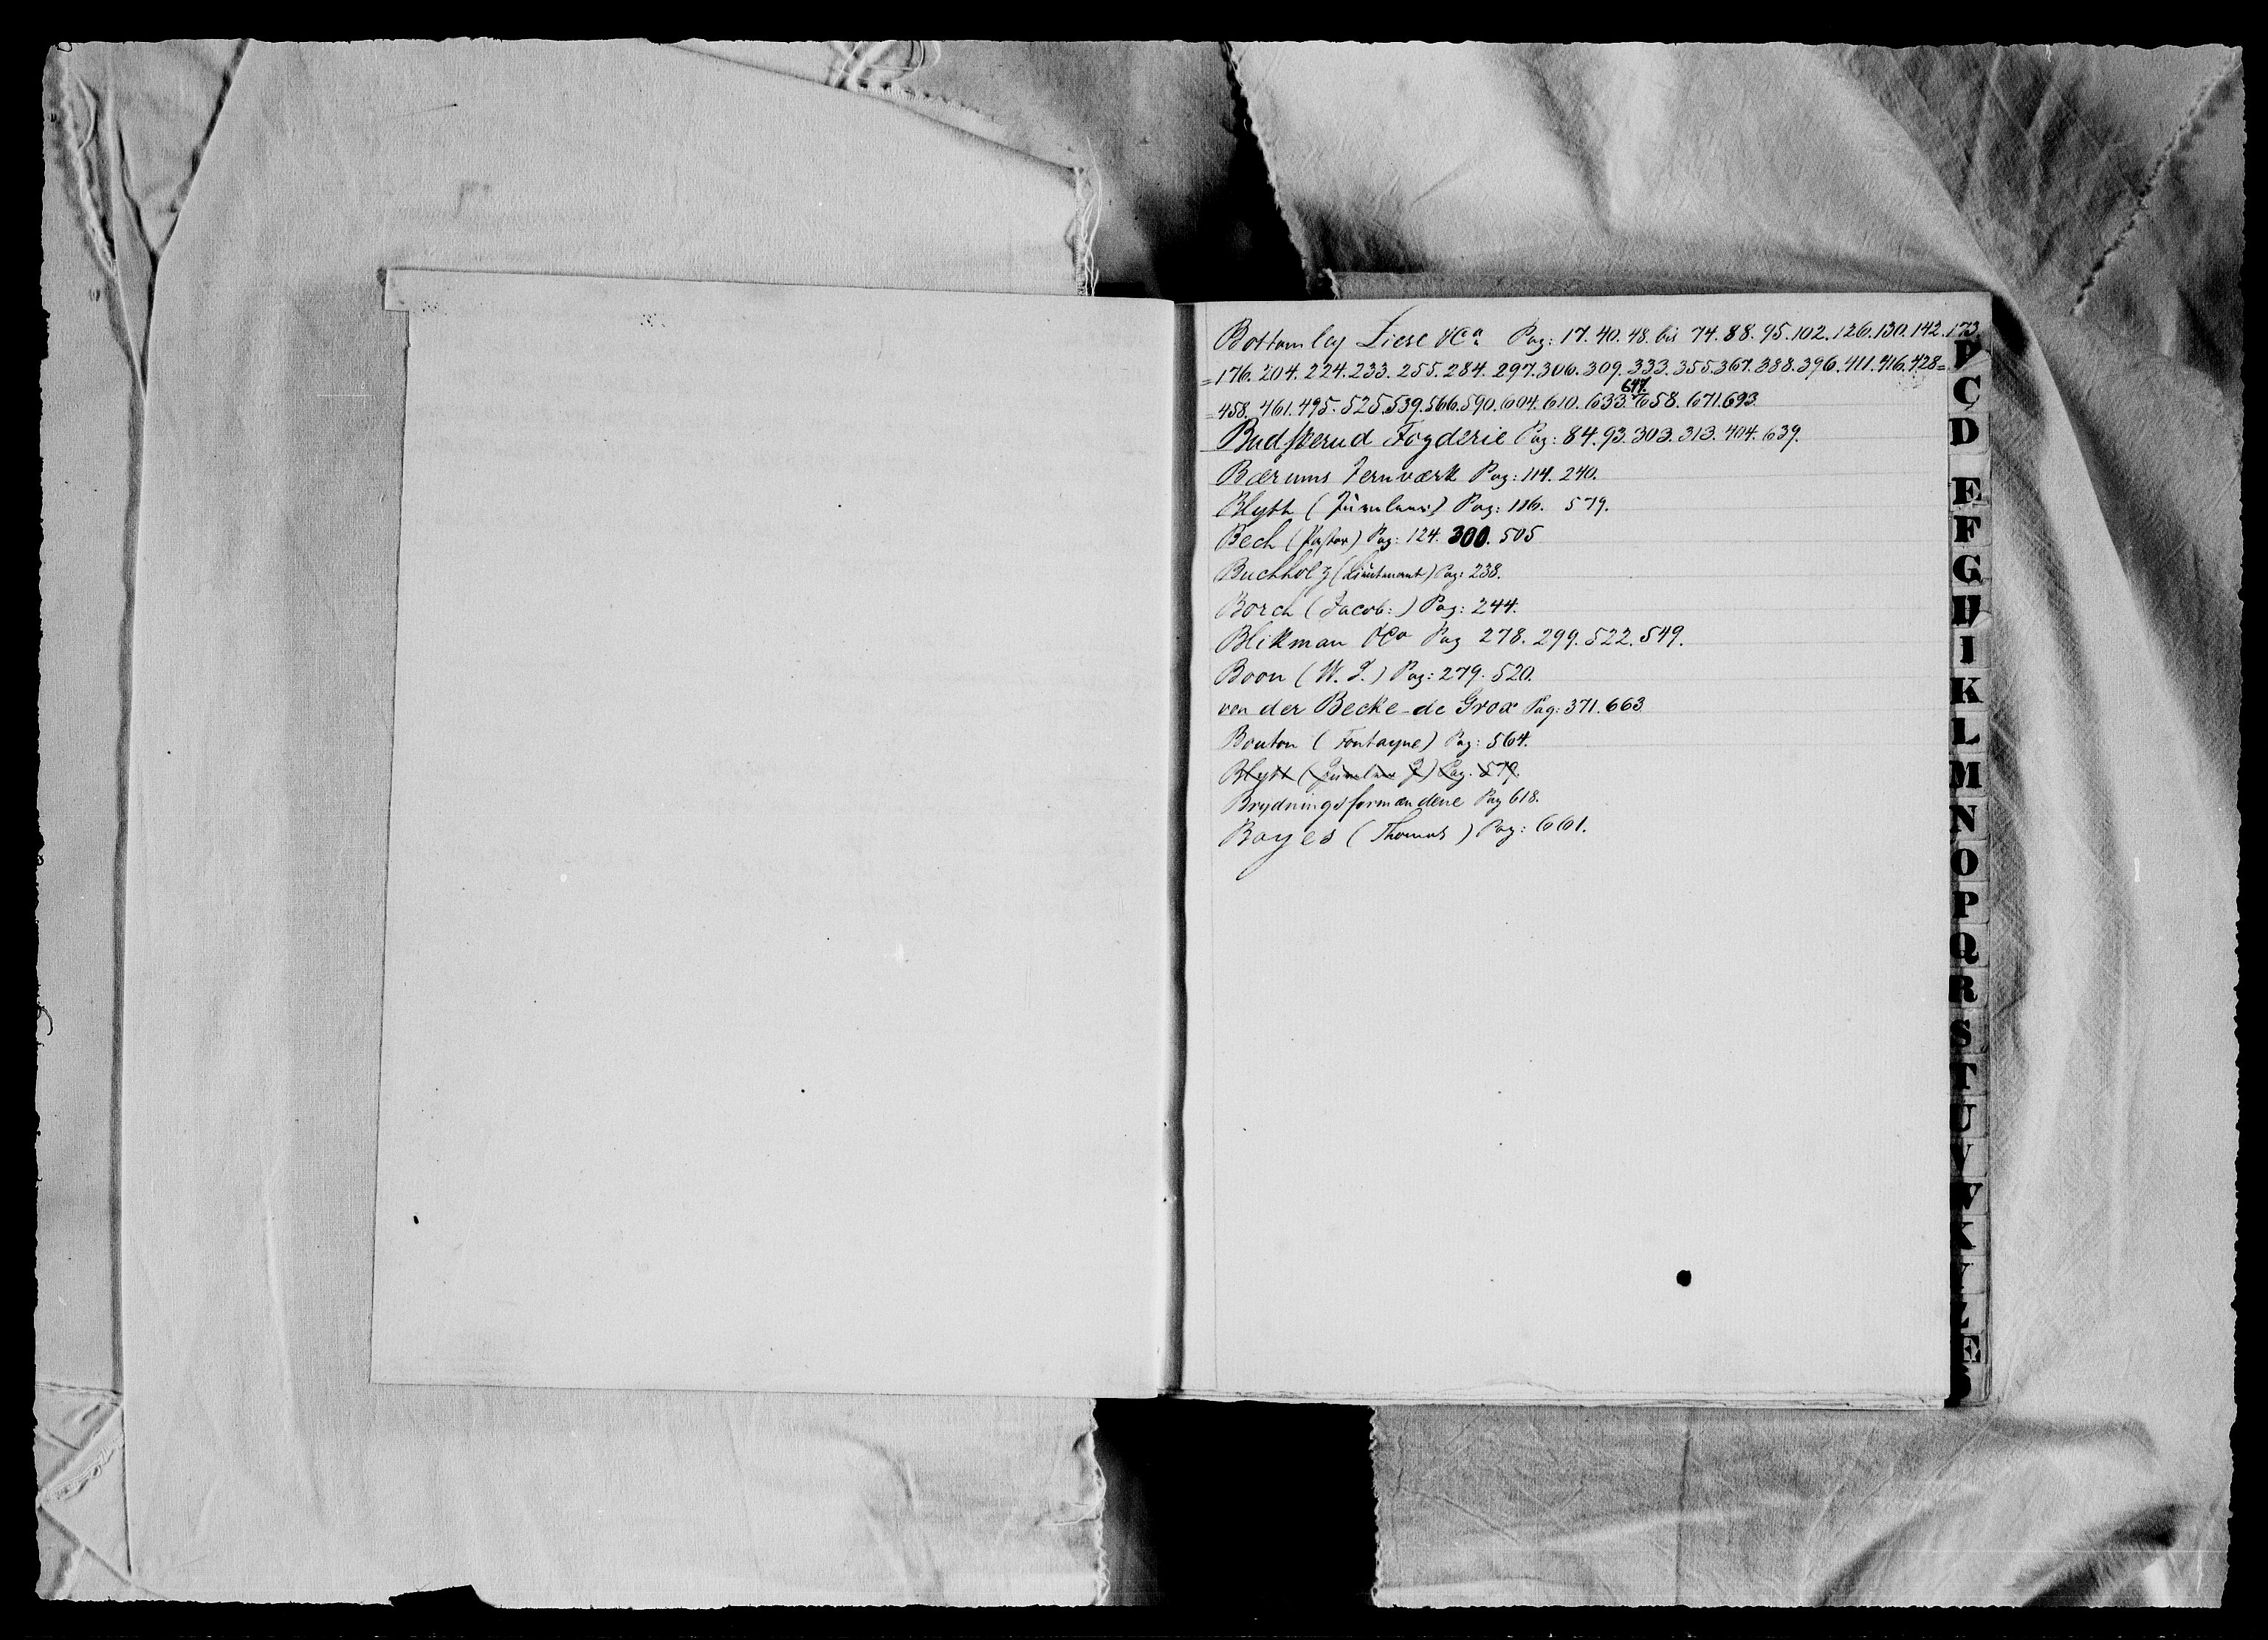 Bottomley Liese &Cº Pag: 17. 40. 48. bis 74. 88. 95. 102. 126. 130. 142. 173
=176. 204. 224. 233. 255. 284. 297. 306. 309. 333. 355. 367. 388. 396. 411. 416. 428=
=458. 461. 495. 525. 539. 566. 590. 604. 610. 633. 647. 658. 671. 693.
Budskerud Fogderie Pag: 84. 93. 303. 313. 404. 639.
Bærums Jernværk Pag: 114. 240.
Blyth (Juveleer) Pag: 116. 579.
Bech (Pastor) Pag: 124. 300. 505
Buchholz (Lieutenant) Pag: 238.
Borch (Jacob:) Pag: 244.
Blikman &Co Pag 278. 299. 522. 549.
Boon (W. J.) Pag: 279. 520.
von der Becke-de Grox Pag: 371. 663
Bouton (Fontayne) Pag: 564.
Blyth (Juveleer) Pag. 579.
Brydningsformændene Pag 618.
Boyes (Thomas) Pag: 661.
C
D
E
F
G
H
I
K
L
M
N
O
P
Q
R
S
T
U
V